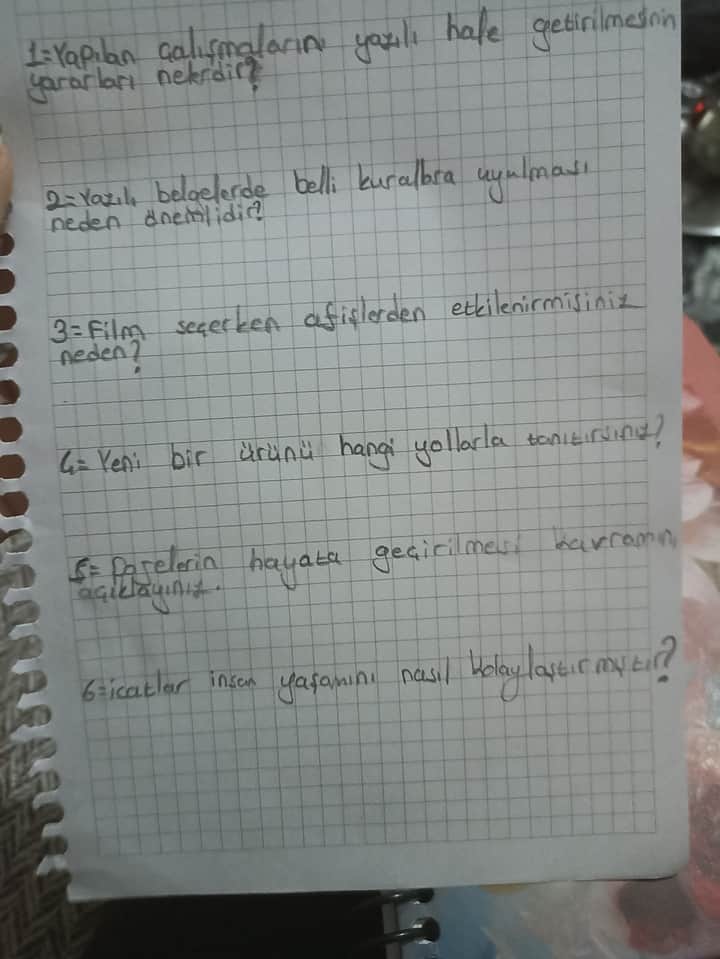 1=Yapılan çalışmaların yazılı hale getirilmesnin
yararları nelerdir?
2=Yazılı belgelerde belli kurallara uyulması
neden önemlidir?
3=Film seçerken afişlerden etkilenirmisiniz
neden?
4=Yeni bir ürünü hangi yollarla tanıtırsınız?
5= hayata geçirilmesi kavramını
açıklayınız.
6=icatlar insan yaşamını nasıl kolaylaştırmıştır?